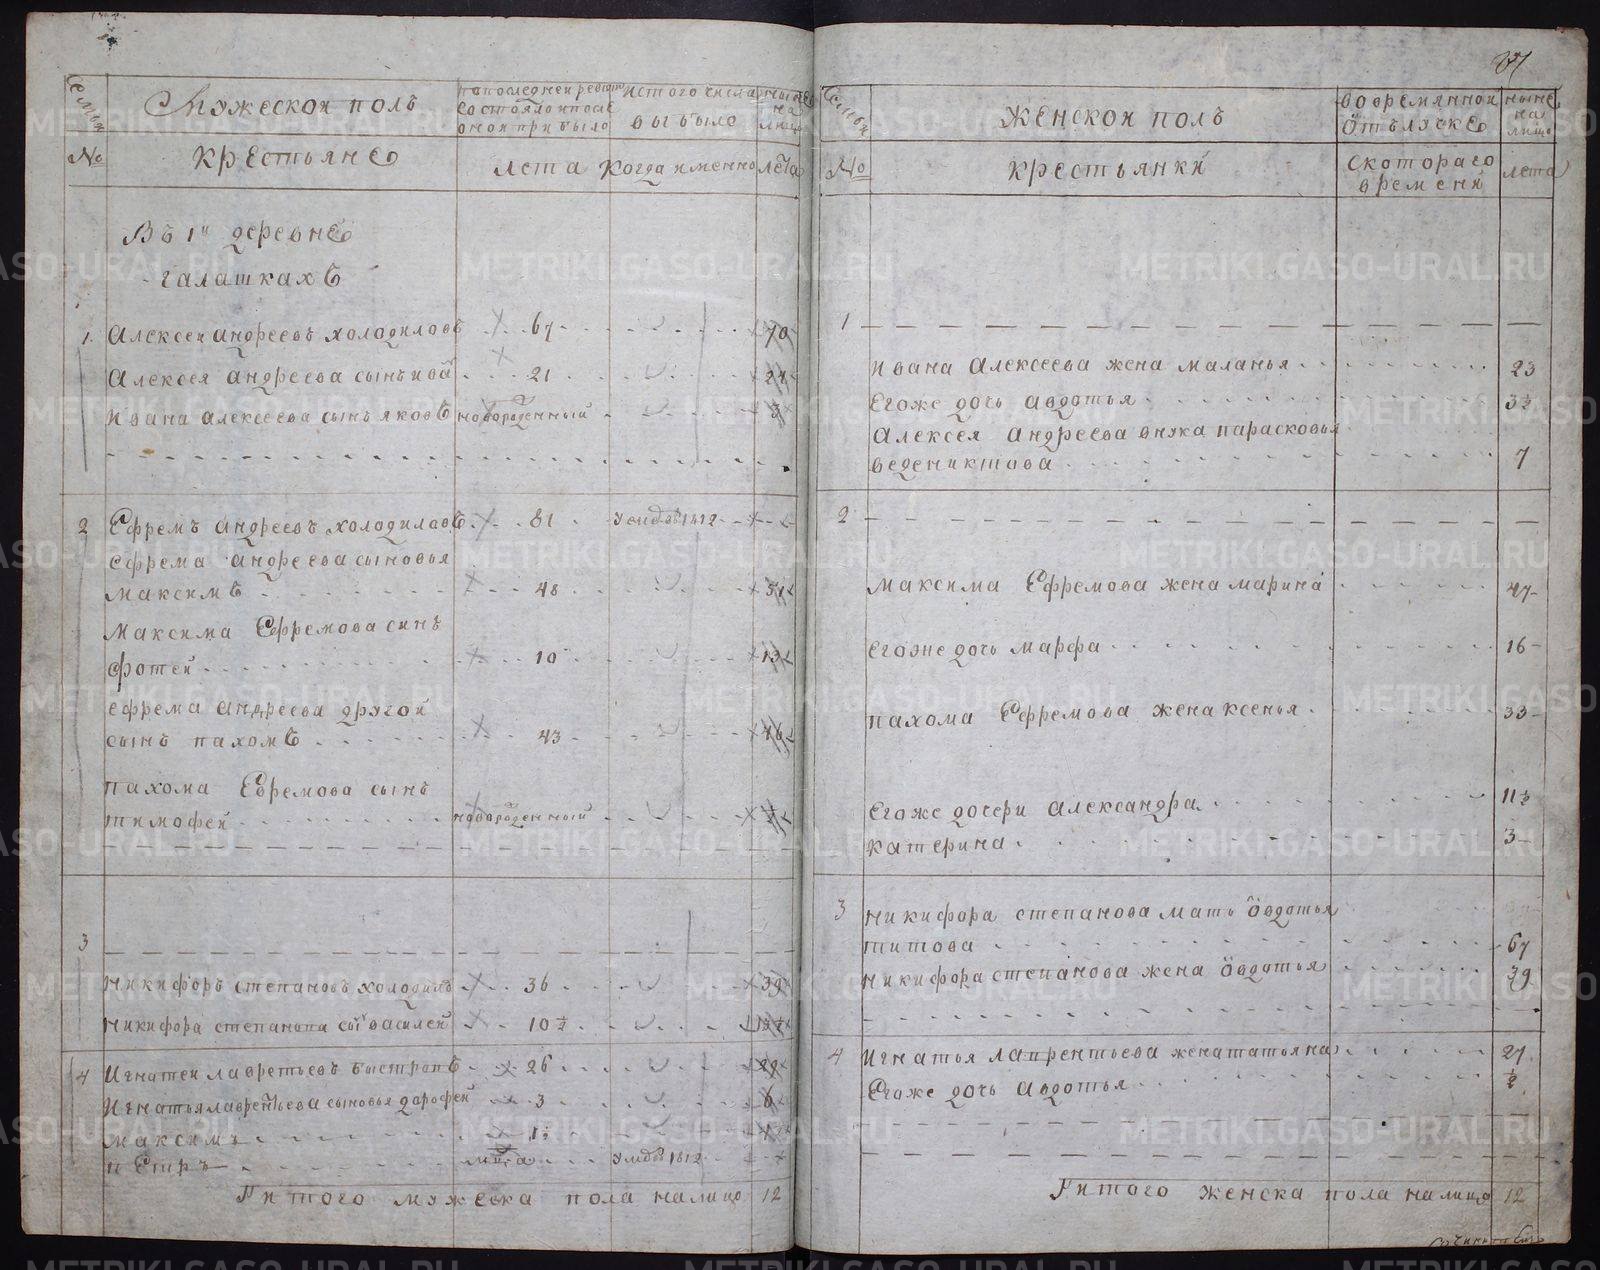 Семьи
Мужескои полъ
по последней ревизии состояло и после оной прибыло
ис того числа выбыло
ныне на лицо
№
крестьяне
лета
когда именно
лета
Въ 1й деревне
галашкахъ
1 Алексеи андреевъ холодиловъ 67 70
Алексея андреева сынъ ива 21 24
Ивана алексеева сынъ яковъ новорожденный 3
2 Ефремъ андреевъ холодиловъ 81 1812
ефрема андреева сыновья
максимъ 48 51
максима Ефремова синъ
фотей 10 13
ефрема андреева другой
сынъ пахомъ 43 46
пахома Ефремова сынъ
тимофей новорожденный
3
никифоръ степановъ холодилъ 36 39
никифора степанова сынъ василей 10½ 13½
4 Игнатеи лавретьевъ быстровъ 26 29
Игнатья лаврентьева сыновья дорофей 3 6
максимъ 1½
петръ 1812
Итого мужеска пола налицо 12
87
Семьи
женскои полъ
во временной отълучке
ныне на лицо
№
крестьянки
с котораго времени
лета
1
Ивана Алексеева жена маланья 23
Егоже дочь авдотья 3½
Алексея андреева внука парасковья
веденихтова 7
2
максима Ефремова жена марина 47
Егоже дочь марфа 16
пахома Ефремова жена ксенья 33
Егоже дочери александра 11½
катерина 3
3 никифора степанова мать овдотья
титова 67
никифора степанова жена овдотья 39
4 Игнатья лаврентьева жена татьяна 27
Егоже дочь авдотья ½
Итого женска пола налицо 12
METRIKI.GASO-URAL.RU